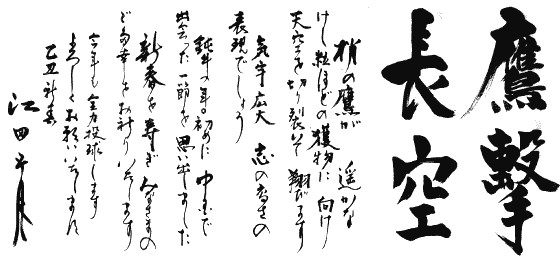 鷹撃
長空
梢の鷹が 遥かな
けし粒ほどの獲物に向け
天空を切り裂いて翔びます
気宇広大 志の高さの
表現でしょう
鈍牛の年。初めに中国で
出会った一節を思い出しました
新春を寿ぎみなさまの
ご多幸をお祈りいたします
今年も全力投球します
よろしくお願いいたします
乙丑新春
江田五月